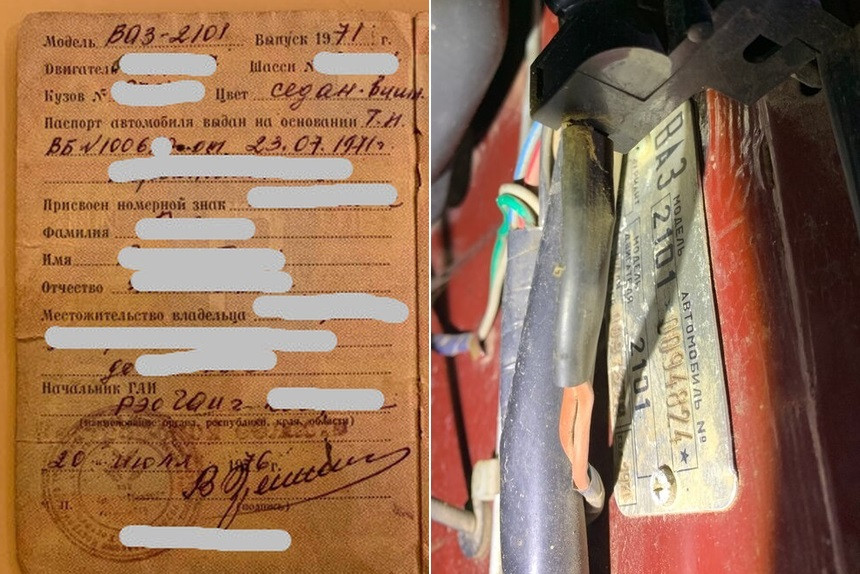 Модель ВАЗ-2101 Выпуск 1971 г.
Двигатель Шасси №
Кузов № Цвет седан-вишн.
Паспорт автомобиля выдан на основании Т.П.
23.07.1971г.
Присвоен номерной знак
Фамилия
Имя
Отчество
Местожительство владельца
Начальник ГАИ
РЭО ГАИ г.
(наименование органа, республики, края, области)
20 июля 1976 г.
М. П. (подпись)
ВАЗ МОДЕЛЬ АВТОМОБИЛЬ №
2101 0094824 ★
МОДЕЛЬ
ДВИГАТЕЛЯ 2101